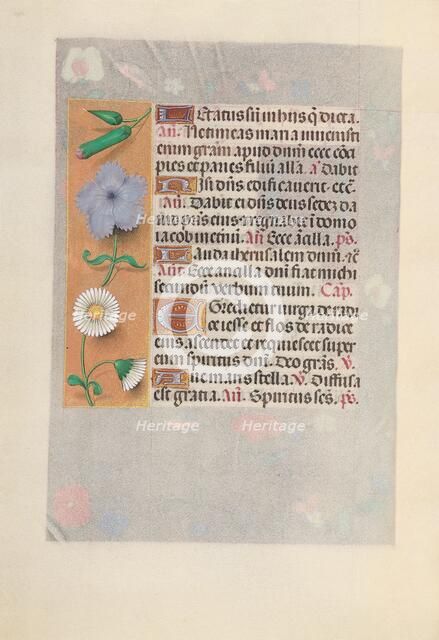 Letatus sũ in hiis q̃ dicta.
añ. Ne timeas maria inuenisti
enim gratiam apud dnm̃ ecce cõci
pies et paries filiũ alla. a Dabit
Nisi dñs edificauerit ec̃.
Añ. Dabit ei dñs sedẽ da
uid patris eius et regnabit in domo
iacob in etnũ. Añ Ecce ancilla. ps.
Lauda iherusalem dnm̃. ꝛc̃
Añ. Ecce ancilla dnĩ fiat michi
secundũ verbum tuum. Cap.
Egredietur uirga de radi
ce iesse et flos de radice
eius ascendet et requiescet super
eum spiritus dnĩ. Deo grãs. V.
Aue maris stella. V. Diffusa
est gratia. Añ. Spiritus sc̃s. ps.
Heritage
Heritage
Heritage
Heritage
Heritage
Heritage